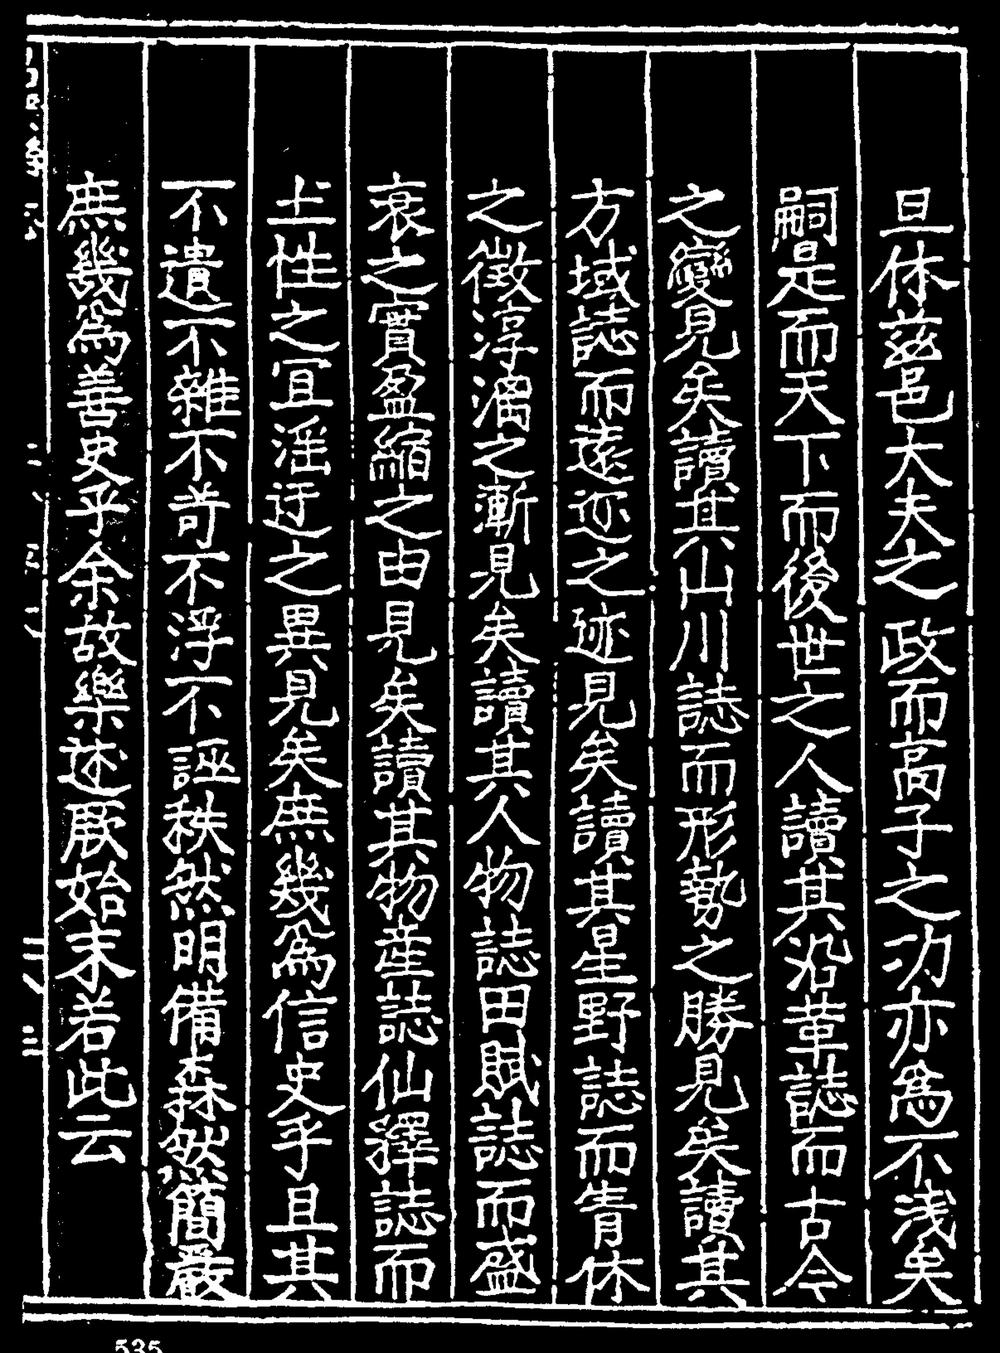 旦休茲邑大夫之政而高子之功亦為不浅矣
嗣是而天下而後世之人讀其沿革誌而古今
之變見矣讀其山川誌而形勢之勝見矣讀其
方域誌而遠迩之迹見矣讀其星野誌而眚休
之徵淳漓之漸見矣讀其人物誌田賦誌而盛
衰之實盈縮之由見矣讀其物産誌仙釋誌而
土性之宜滛迂之異見矣庶幾為信史乎且其
不遺不雜不苛不浮不誣秩然明備森然簡嚴
庶幾為善史乎余故樂述厥始末若此云
535